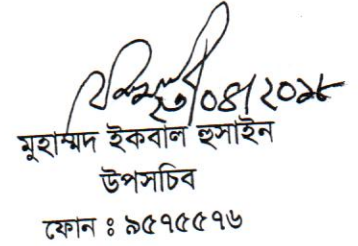 ২৩/০৪/২০১৮
মুহাম্মদ ইকবাল হুসাইন
উপসচিব
ফোন : ৯৫৭৫৫৭৬